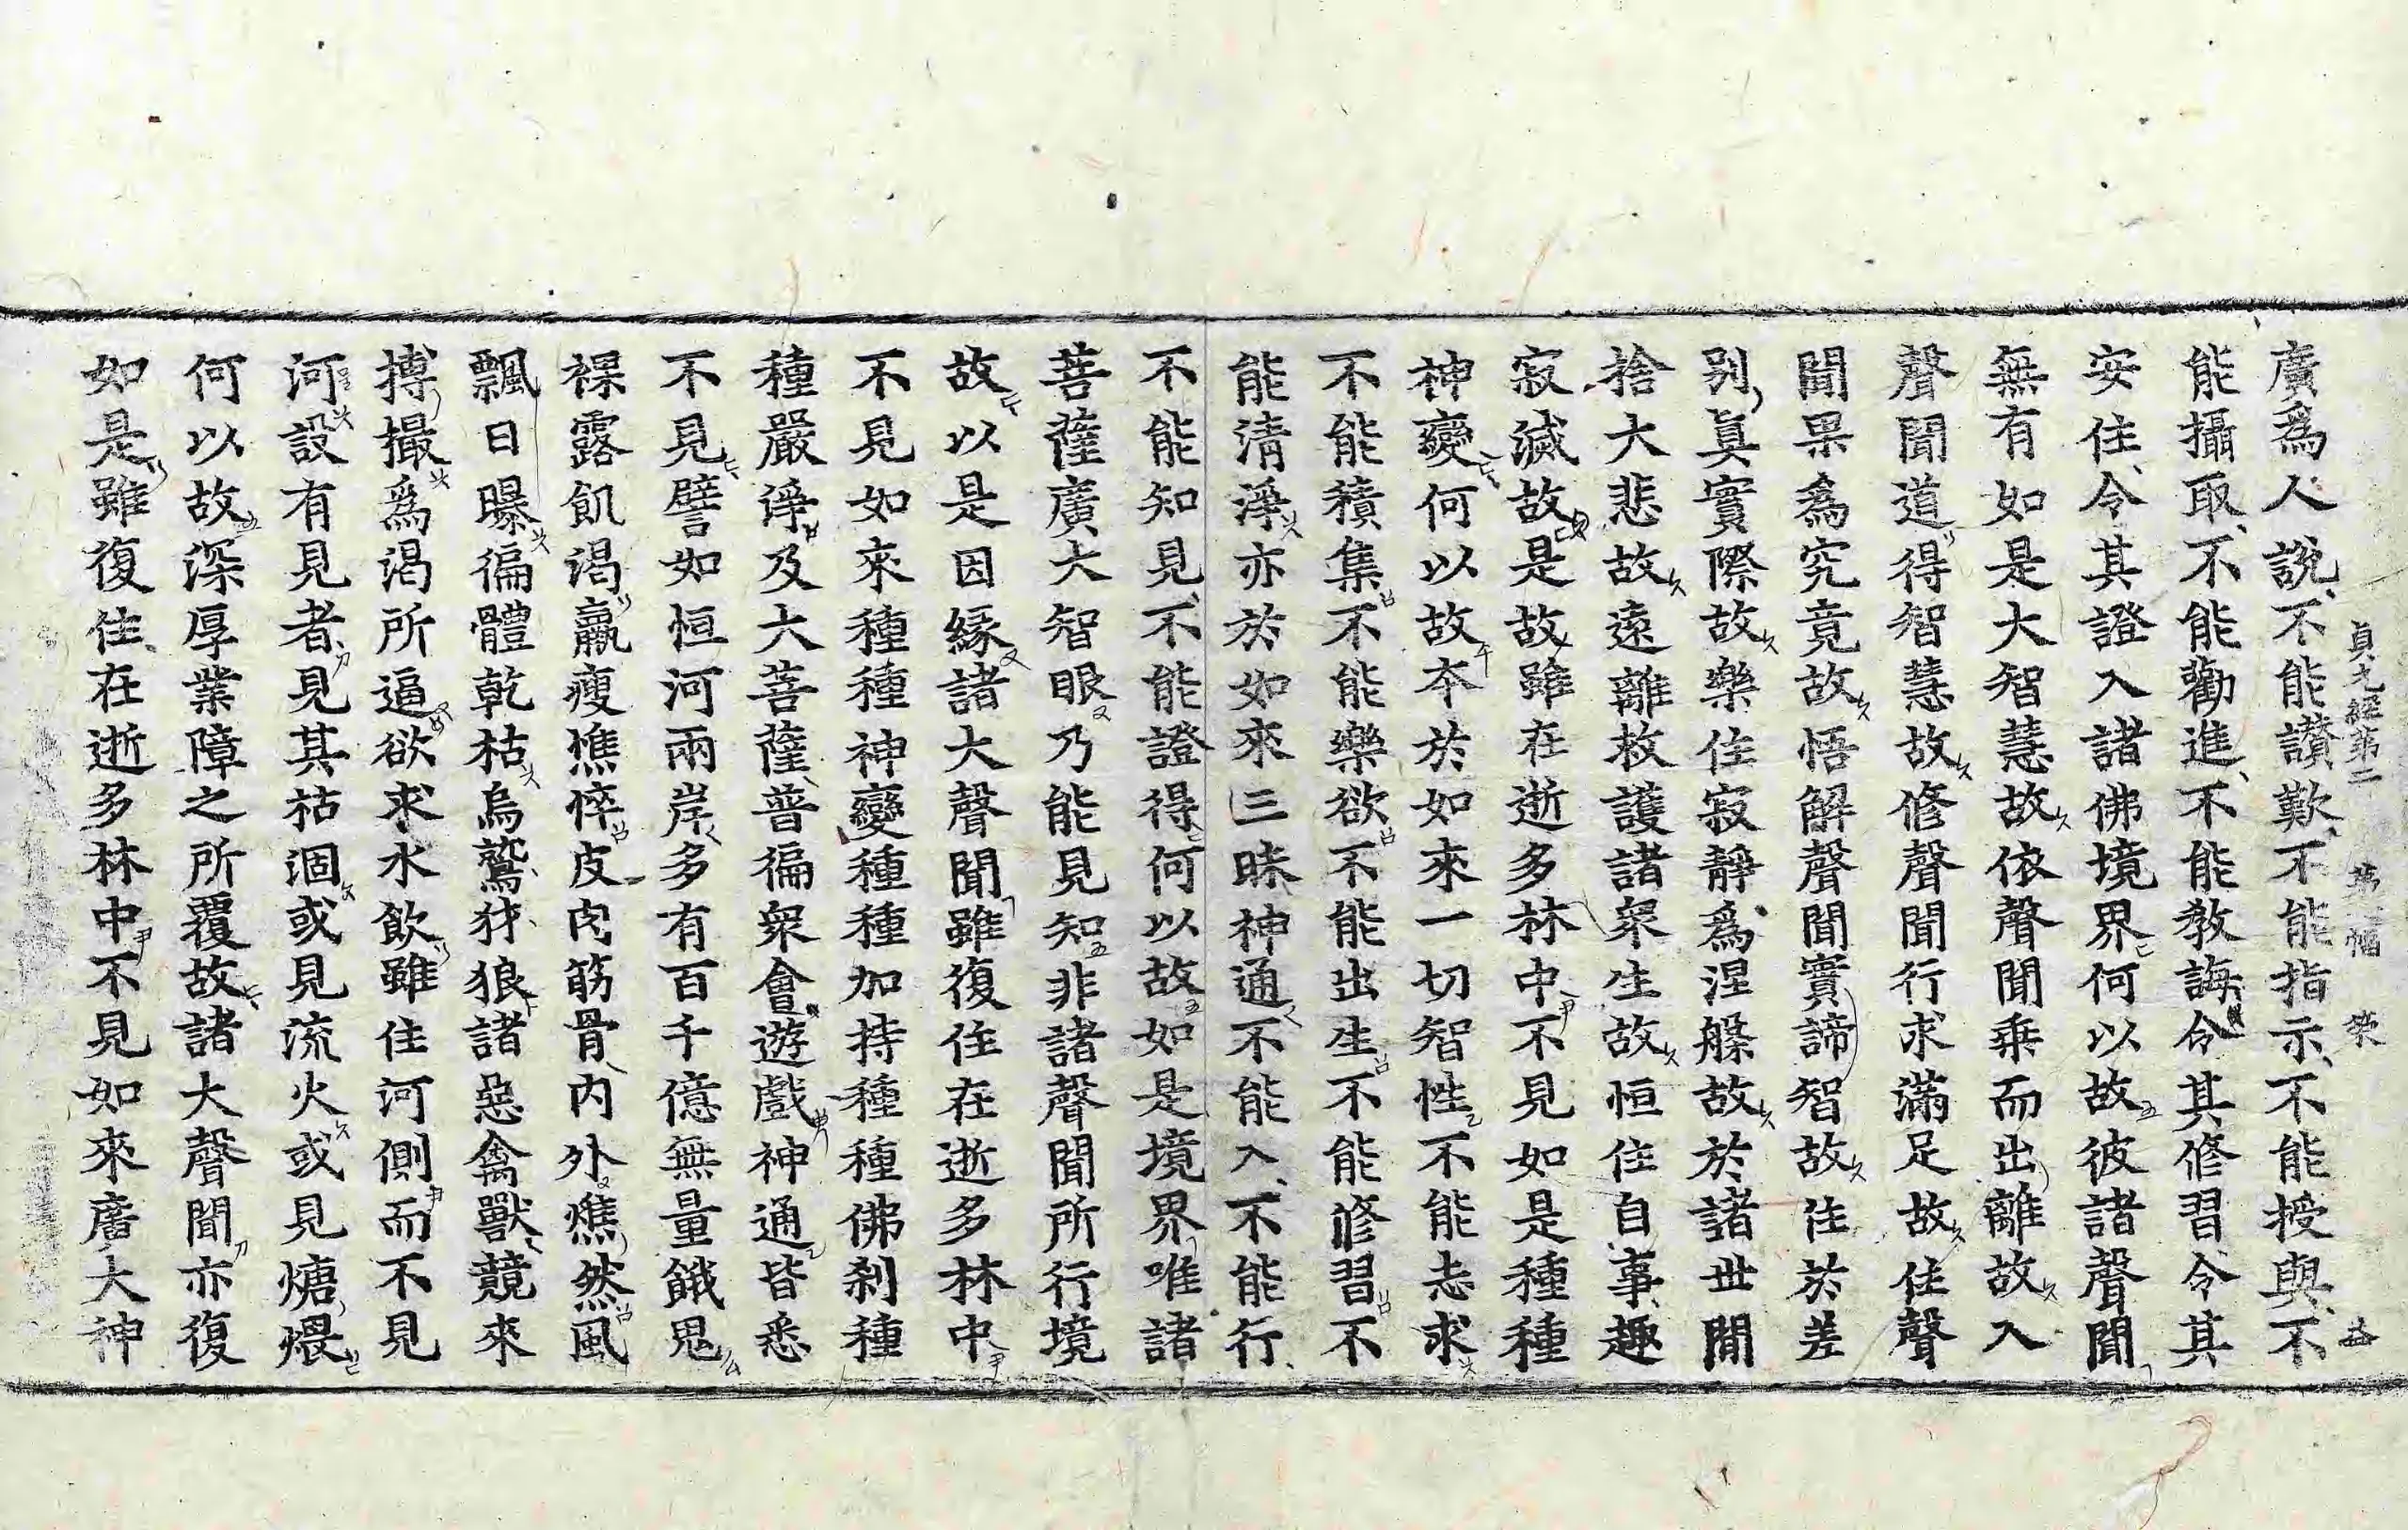 廣爲人說不能讃歎不能指示不能授與不
貞元經第二
能攝取不能勸進不能敎誨令其修習令其
安住令其證入諸佛境界何以故彼諸聲聞
無有如是大智慧故依聲聞乘而出離故入
聲聞道得智慧故修聲聞行求滿足故住聲
聞果爲究竟故悟解聲聞實諦智故住於差
別眞實際故樂住寂靜爲涅槃故於諸世閒
捨大悲故遠離救護諸衆生故恒住自事趣
寂滅故是故雖在逝多林中不見如是種種
神變何以故本於如來一切智性不能志求
不能積集不能樂欲不能出生不能修習不
能清淨亦於如來三昧神通不能入不能行
不能知見不能證得何以故如是境界唯諸
菩薩廣大智眼乃能見知非諸聲聞所行境
故以是因緣諸大聲聞雖復住在逝多林中
不見如來種種神變種種加持種種佛刹種
種嚴淨及大菩薩普徧衆會遊戲神通皆悉
不見譬如恒河兩岸多有百千億無量餓鬼
裸露飢渴羸瘦憔悴皮肉筋骨內外燋然風
飄日曝徧體乾枯烏鷲犲狼諸惡禽獸競來
搏撮爲渴所逼欲求水飮雖住河側而不見
河設有見者見其枯涸或見流火或見煻煨
何以故深厚業障之所覆故諸大聲聞亦復
如是雖復住在逝多林中不見如來廣大神